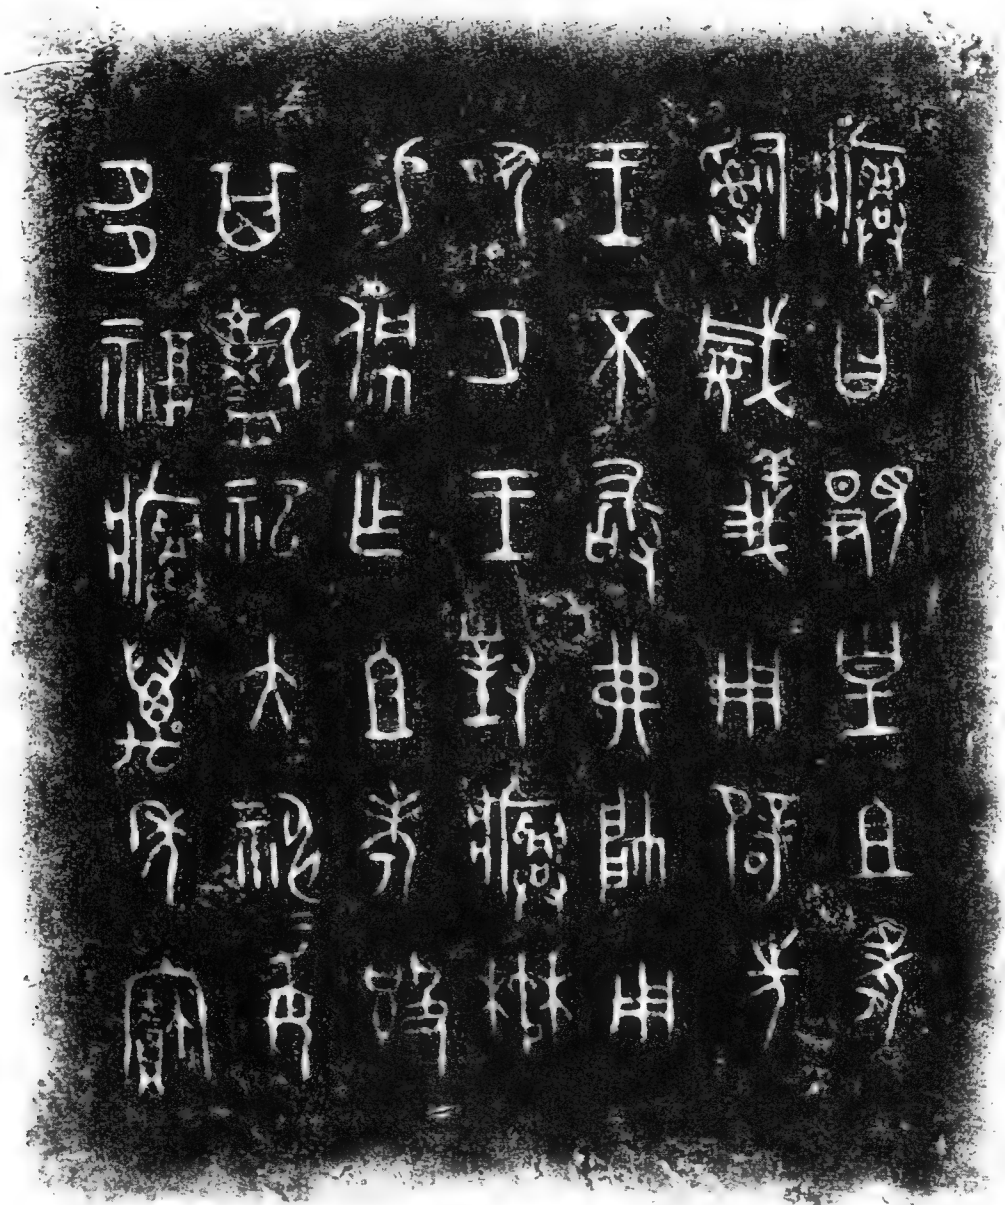 𤼈曰覭皇且考
𤔲威義用辟先
王不敢弗帥用
夙夕王對𤼈楙
易佩乍且考𣪘
其祀大神
多福𤼈萬年寶